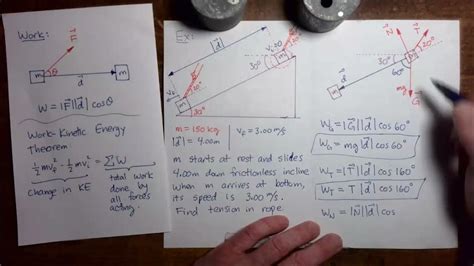 Work:
F
θ
m
m
d
W = |F||d| cosθ
Work-Kinetic Energy
Theorem:
½mv_f² - ½mv_i² = ΣW
change in KE
total work
done by
all forces
acting.
Ex:
|d|
v_i=0
30°
20°
m
v_f
20°
m = 150 kg
v_f = 3.00 m/s
|d| = 4.00m
m starts at rest and slides
4.00m down frictionless incline
when m arrives at bottom,
its speed is 3.00 m/s.
Find tension in rope.
N
T
20°
30°
60°
d
m
mg
G
W_G = |G||d| cos 60°
W_G = mg|d| cos 60°
W_T = |T||d| cos 160°
W_T = T |d| cos 160°
W_N = |N||d| cos